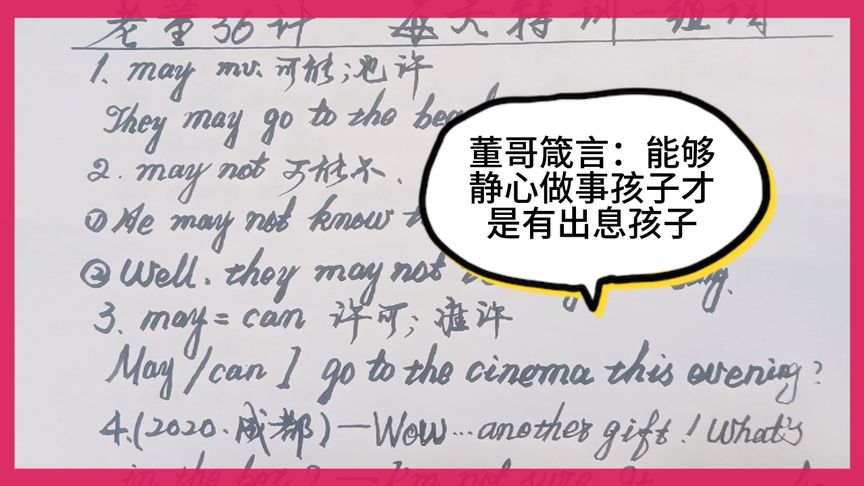 老董36计 每天特训一组词
1. may mv. 可能;也许
They may go to the
2. may not 可能不.
① He may not know
② Well. they may not
3. may = can 许可; 准许
May/can I go to the cinema this evening?
4.(2020·成都)—Wow...another gift! What's
in the box? —I'm not sure. It
董哥箴言：能够
静心做事孩子才
是有出息孩子